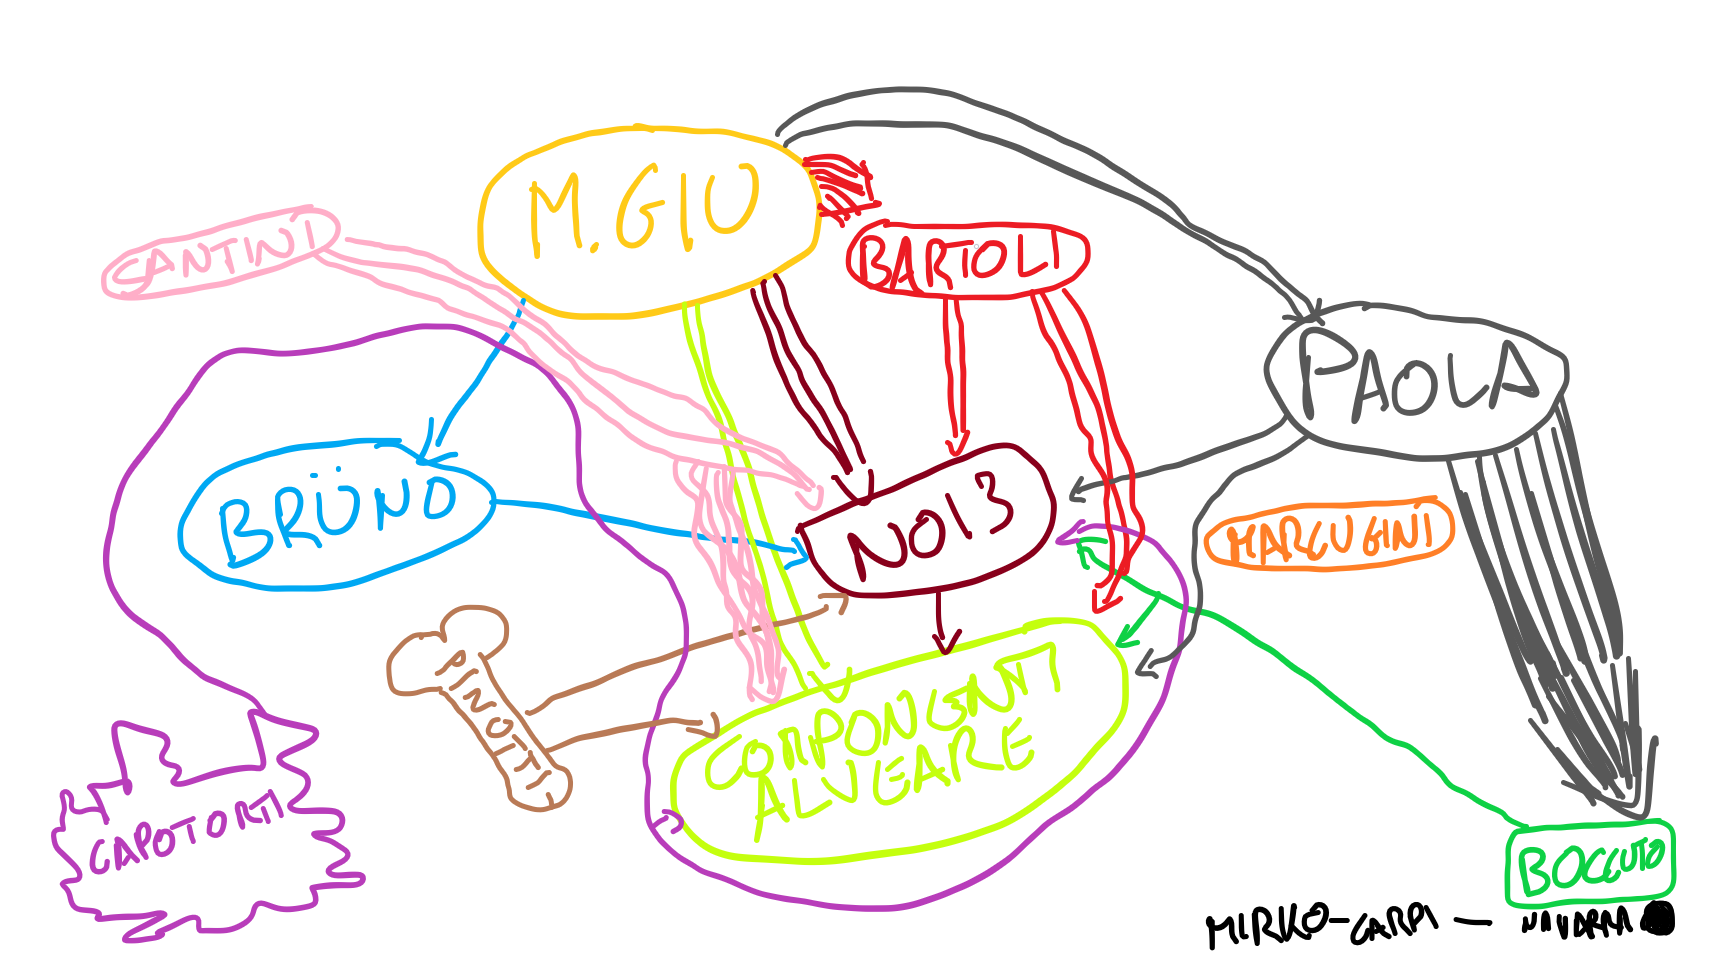 M.GIU
SANTINI
BARTOLI
PAOLA
BRÜNO
NOI3
MARCUGINI
PINOTTI
COMPONENTI
ALVEARE
CAPOTORTI
BOCCUTO
MIRKO-CARPI - NAVARRA